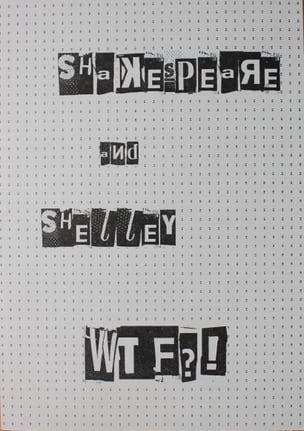 SHaKESPEaRE
aNd
SHELLEY
WTF?!